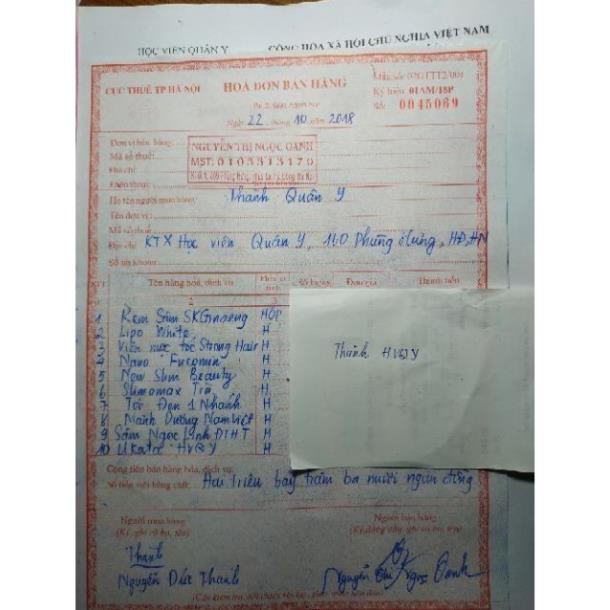 HỌC VIỆN QUÂN Y CỘNG HÒA XÃ HỘI CHỦ NGHĨA VIỆT NAM
CỤC THUẾ TP HÀ NỘI
HOÁ ĐƠN BÁN HÀNG
Mẫu số: 02GTTT2/001
Ký hiệu: 01AM/18P
Số: 0045069
Ngày 22 tháng 10 năm 2018
Đơn vị bán hàng:
NGUYỄN THỊ NGỌC OANH
Mã số thuế:
MST: 0103313170
Địa chỉ:
Điện thoại:
Họ tên người mua hàng: Thanh Quân Y
Tên đơn vị:
Mã số thuế:
Địa chỉ KTX Học viện Quân Y, 160 Phùng Hưng, HĐ, HN
Số tài khoản:
STT Tên hàng hoá, dịch vụ Đơn vị tính Số lượng Đơn giá Thành tiền
2 3
1 Kem Sâm SKGinseng HỘP
2 Lipo White H
3 Viên mọc tóc Strong Hair H
4 Nano Fucomin H
5 New Slim Beauty H
6 Slimomax Trà H
7 Tỏi Đen 1 Nhánh H
8 Mãnh Dương Nam Việt H
9 Sâm Ngọc Linh ĐTHT H
10 Ukator HVQY H
Thành HVQY
Cộng tiền bán hàng hóa, dịch vụ:
Số tiền viết bằng chữ: Hai triệu bảy trăm ba mươi ngàn đồng
Người mua hàng
(Ký, ghi rõ họ, tên)
Người bán hàng
(Ký, đóng dấu, ghi rõ họ, tên)
Thanh
Nguyễn Đức Thanh
Nguyễn Thị Ngọc Oanh